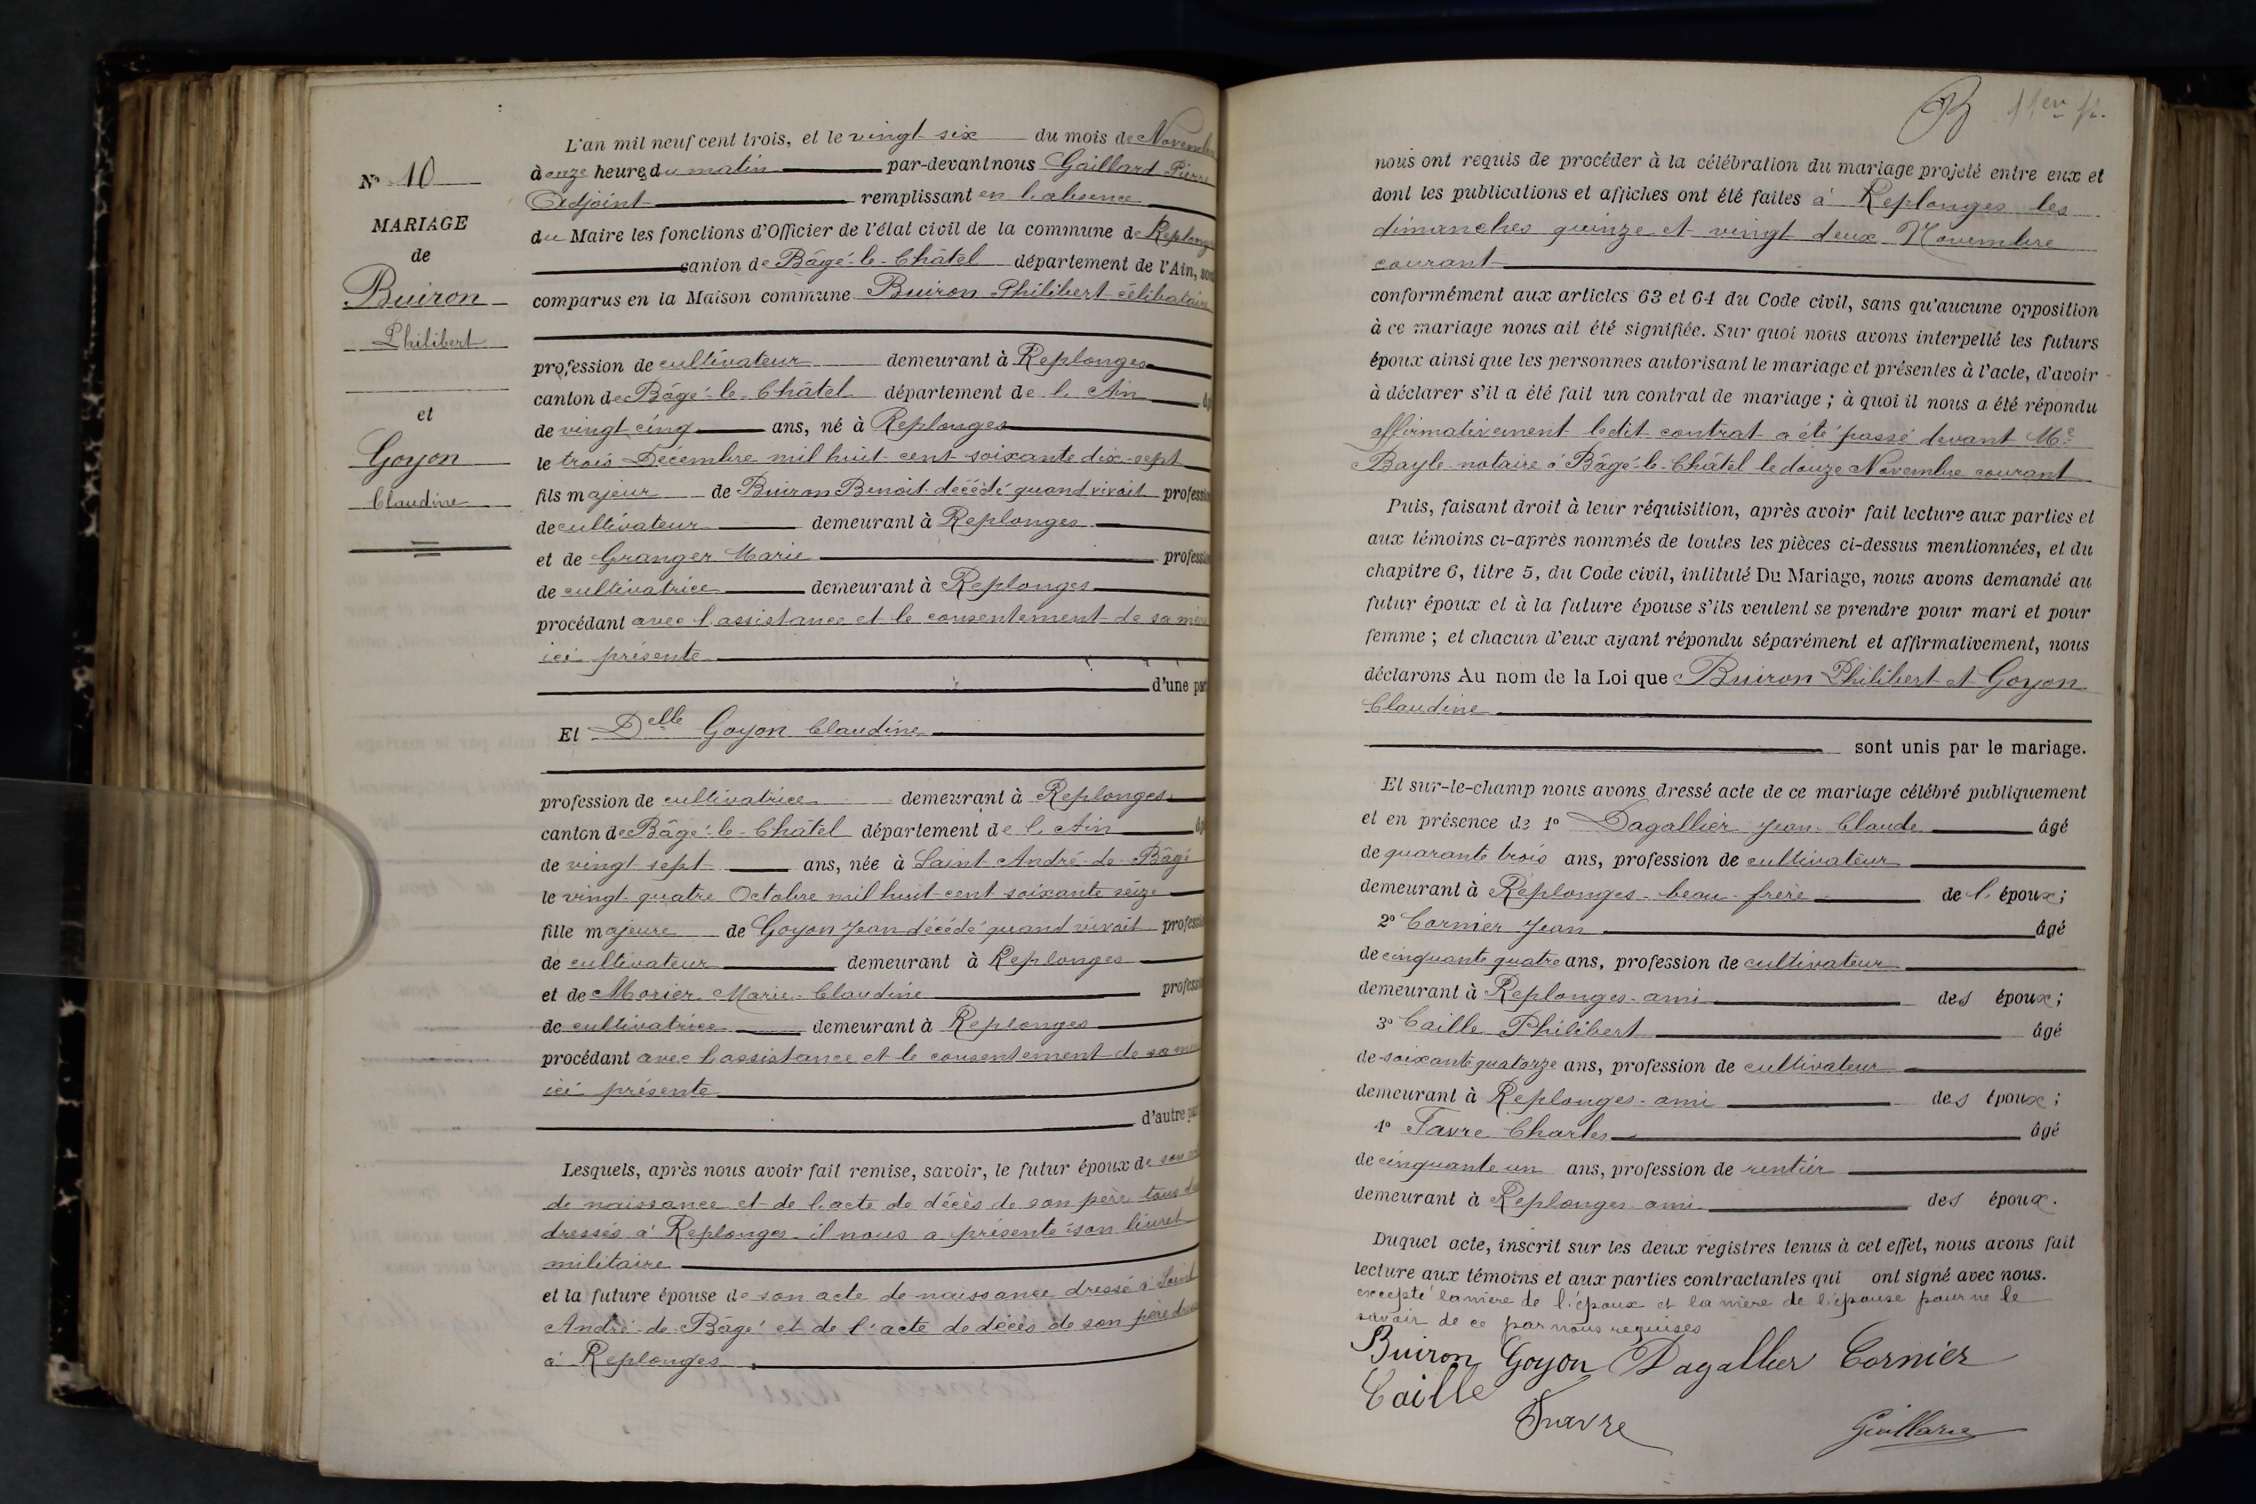 N° 10
MARIAGE
de
Buiron
Philibert
et
Goyon
Claudine
L'an mil neuf cent trois, et le vingt six du mois de Novembre
à onze heures du matin par-devant nous Gaillard Pierre
Adjoint remplissant en l'absence
du Maire les fonctions d'Officier de l'état civil de la commune de Replonges
canton de Bâgé-le-Châtel département de l'Ain, sont
comparus en la Maison commune Buiron Philibert célibataire
profession de cultivateur demeurant à Replonges
canton de Bâgé-le-Châtel département de l'Ain âgé
de vingt cinq ans, né à Replonges
le trois Décembre mil huit cent soixante dix-sept
fils majeur de Buiron Benoit décédé quand vivait profession
de cultivateur demeurant à Replonges
et de Granger Marie profession
de cultivatrice demeurant à Replonges
procédant avec l'assistance et le consentement de sa mère
ici présente
d'une part
Et Delle Goyon Claudine
profession de cultivatrice demeurant à Replonges
canton de Bâgé-le-Châtel département de l'Ain âgé
de vingt sept ans, née à Saint André-de-Bâgé
le vingt-quatre Octobre mil huit cent soixante seize
fille majeure de Goyon Jean décédé quand vivait profession
de cultivateur demeurant à Replonges
et de Morier Marie-Claudine profession
de cultivatrice demeurant à Replonges
procédant avec l'assistance et le consentement de sa mère
ici présente
d'autre part
Lesquels, après nous avoir fait remise, savoir, le futur époux de son
de naissance et de l'acte de décès de son père tous
dressés à Replonges il nous a présenté son livret
militaire
et la future épouse de son acte de naissance dressé à Saint
André-de-Bâgé et de l'acte de décès de son père dressé
à Replonges
nous ont requis de procéder à la célébration du mariage projeté entre eux et
dont les publications et affiches ont été faites à Replonges les
dimanches quinze et vingt deux Novembre
courant
conformément aux articles 63 et 64 du Code civil, sans qu'aucune opposition
à ce mariage nous ait été signifiée. Sur quoi nous avons interpellé les futurs
époux ainsi que les personnes autorisant le mariage et présentes à l'acte, d'avoir
à déclarer s'il a été fait un contrat de mariage ; à quoi il nous a été répondu
affirmativement ledit contrat a été passé devant Me
Bayle notaire à Bâgé-le-Châtel le douze Novembre courant
Puis, faisant droit à leur réquisition, après avoir fait lecture aux parties et
aux témoins ci-après nommés de toutes les pièces ci-dessus mentionnées, et du
chapitre 6, titre 5, du Code civil, intitulé Du Mariage, nous avons demandé au
futur époux et à la future épouse s'ils veulent se prendre pour mari et pour
femme ; et chacun d'eux ayant répondu séparément et affirmativement, nous
déclarons Au nom de la Loi que Buiron Philibert et Goyon
Claudine
sont unis par le mariage.
Et sur-le-champ nous avons dressé acte de ce mariage célébré publiquement
et en présence de 1° Dagallier Jean-Claude âgé
de quarante trois ans, profession de cultivateur
demeurant à Replonges beau-frère de l'époux ;
2° Cornier Jean âgé
de cinquante quatre ans, profession de cultivateur
demeurant à Replonges-ami des époux ;
3° Caille Philibert âgé
de soixante quatorze ans, profession de cultivateur
demeurant à Replonges-ami des époux ;
4° Favre Charles âgé
de cinquante un ans, profession de rentier
demeurant à Replonges ami des époux.
Duquel acte, inscrit sur les deux registres tenus à cet effet, nous avons fait
lecture aux témoins et aux parties contractantes qui ont signé avec nous.
excepté la mère de l'époux et la mère de l'épouse pour ne le
savoir de ce par nous requises
Buiron Goyon Dagallier Cornier
Caille
Favre
Gaillard